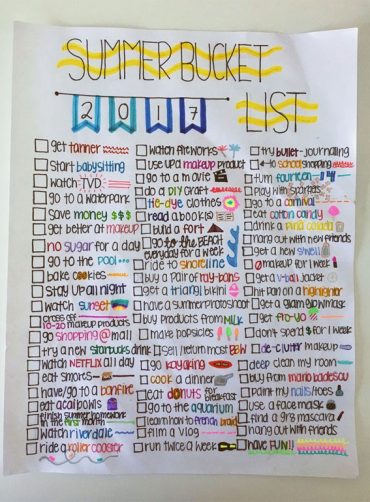 SUMMER BUCKET
2017 LIST
get tanner
start babysitting
watch TVD
go to a waterpark
save money $$$
get better at makeup
no sugar for a day
go to the pool
bake cookies
stay up all night
watch sunset
cross off
10-20 makeup products
go shopping @ mall
try a new starbucks drink
watch NETFLIX all day
eat smores
have/go to a bonfire
eat acai bowls
finish summer homework
in the first month
watch riverdale
ride a roller coaster
watch fireworks
use up a makeup product
go to a movie
do a DIY craft
tie-dye clothes
read a book(s)
build a fort
go to the BEACH
everyday for a week
ride to shoreline
buy a pair of ray-bans
get a triangl bikini
have a summer photoshoot
buy products from MILK
make popsicles
sell/return most B&W
go kayaking
cook a dinner
eat donuts for
breakfast
go to the aquarium
learn how to french braid
film a vlog
run twice a week
try bullet-journaling
school shopping
turn fourteen
play with sparklers
go to a carnival
eat cotton candy
drink a piña colada
hang out with new friends
get a new swell
makeup for 1 week
get a v-ball jacket
hit pan on a highlighter
get a glamglow mask
get fro-yo
don't spend $ for 1 week
de-clutter makeup
deep clean my room
buy from mario badescu
paint my nails/toes
use a face mask
find a gr8 mascara
hang out with friends
have FUN!!